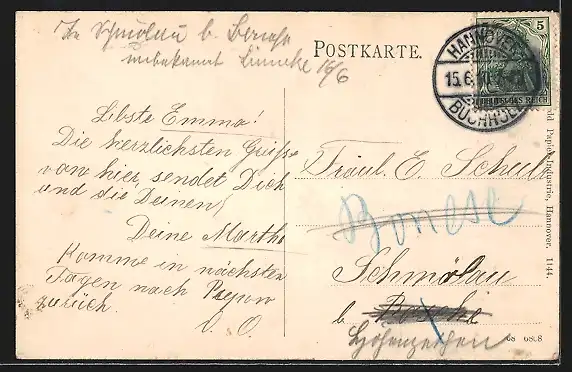 In Schmölau b.
unbekannt 16/6
POSTKARTE.
5
DEUTSCHES REICH
HANNOVER
15.6.
BUCHHOLZ
Lbste Emma!
Die herzlichsten Grüße
von hier, sendet Dich
und die Deinen,
Deine Martha
Komme in nächsten
Tagen nach
zurück.
D. O.
Fräul. E. Schulz
Bonese
Schmölau
b
Papier-Industrie, Hannover. 1144.